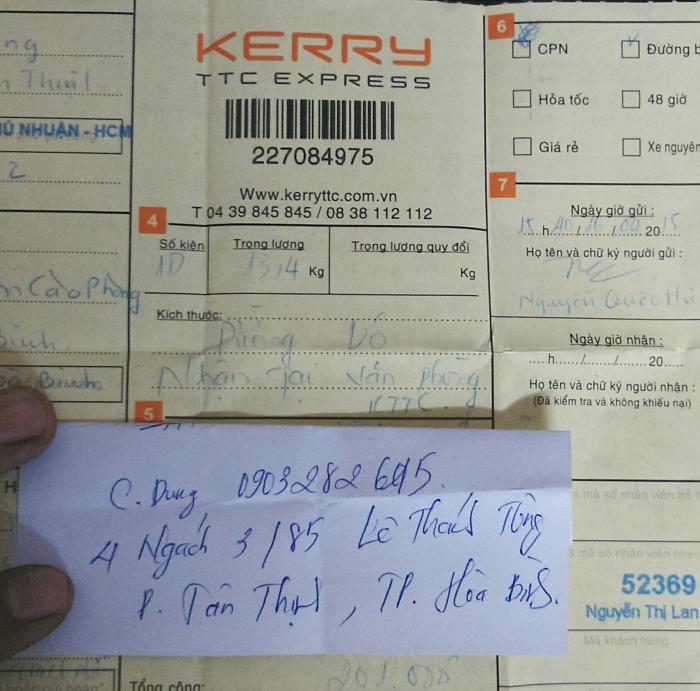 KERRY
TTC EXPRESS
227084975
Www.kerryttc.com.vn
T 04 39 845 845 / 08 38 112 112
ng
n Thuật
HÚ NHUẬN - HCM
2
Cao Phong
Bình
4
Số kiện
Trọng lượng
Trọng lượng quy đổi
1D
13,4 Kg
Kg
Kích thước:
Vỏ
Nhận tại văn phòng
KTTC.
5
6
CPN
Đường b
Hỏa tốc
48 giờ
Giá rẻ
Xe nguyên
7
Ngày giờ gửi :
15 h 40 / 16 / 04 20 15
Họ tên và chữ ký người gửi :
Nguyễn Quốc
Ngày giờ nhận :
h / / 20
Họ tên và chữ ký người nhận :
(Đã kiểm tra và không khiếu nại)
C. Dung, 0903282695.
4 Ngách 3/85 Lê Thánh Tông
P. Tân Thịnh, TP. Hòa Bình.
H
mã số nhân viên trả h
mã số nhân viên nhận
52369
Nguyễn Thị Lan
Mã khách hàng
Tổng cộng:
201.000